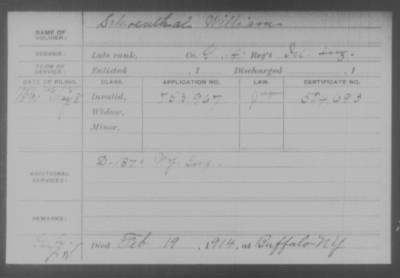 NAME OF SOLDIER: Schoenthal William
SERVICE: Late rank, Co. G, Reg't
TERM OF SERVICE: Enlisted , 1 Discharged , 1
DATE OF FILING. CLASS. APPLICATION NO. LAW. CERTIFICATE NO.
Invalid, 753,967 524,693
Widow,
Minor,
ADDITIONAL SERVICES: NY Inf.
REMARKS:
Died Feb 19, 1914, at Buffalo NY